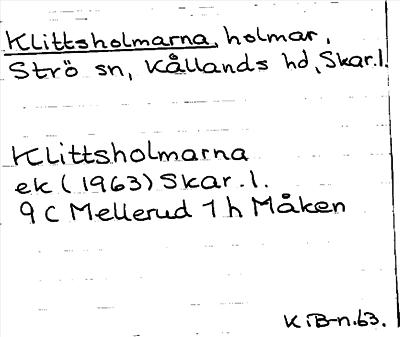 Klittsholmarna, holmar,
Strö sn, Kållands hd, Skar.l.
Klittsholmarna
ek (1963) Skar.l.
9 C Mellerud 1 h Måken
K iB-n.63.